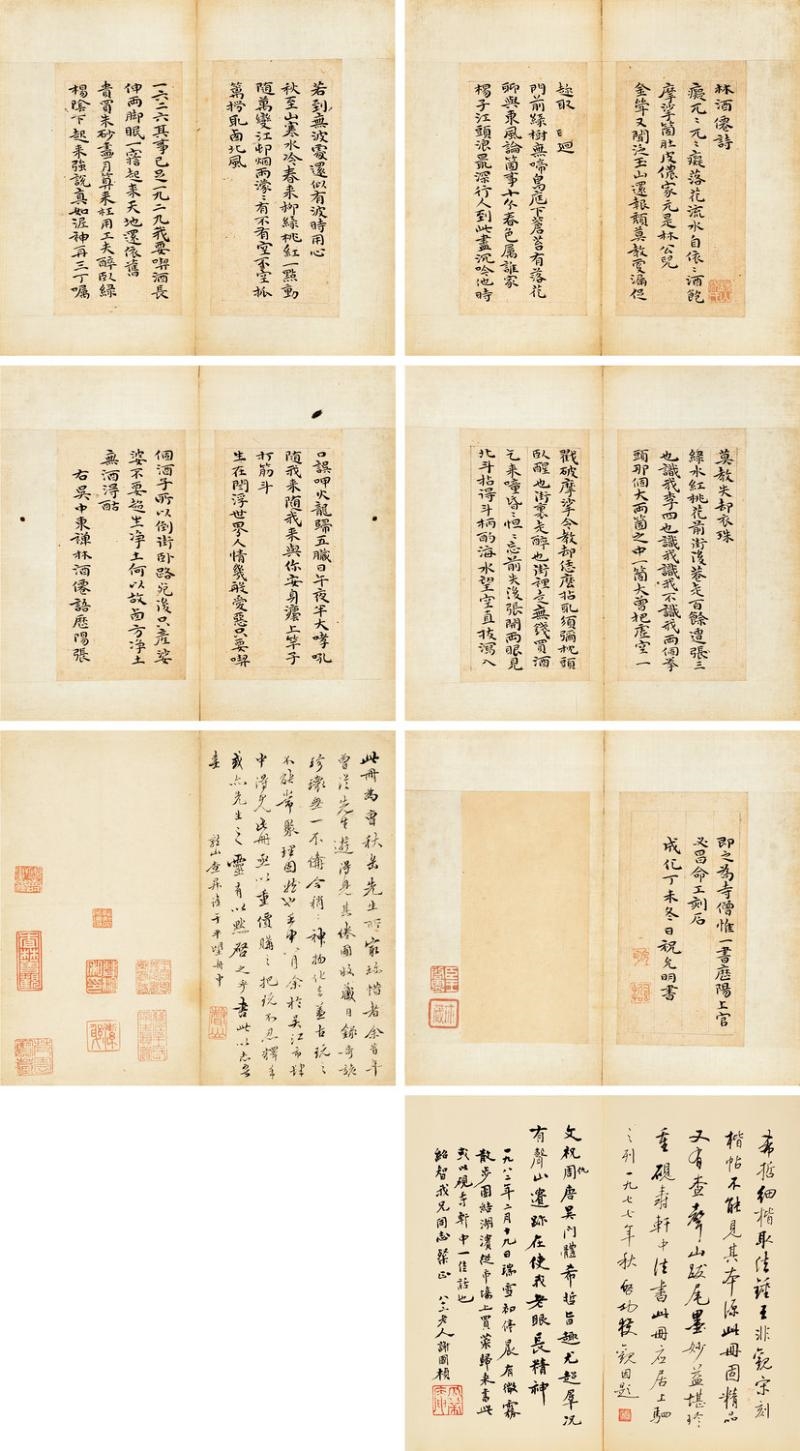 林酒僊詩
癡兀〻兀〻癡落花流水自依〻酒飽
摩挲箇肚皮儂家元是林公兒
金斝又聞泛玉山還報頹莫教更漏促
趁取 日迴
門前綠樹無啼鳥庭下蒼苔有落花
聊與東風論箇事十分春色屬誰家
楊子江頭浪最深行人到此盡沉吟他時
若到無波處還似有波時用心
秋至山寒水冷春來柳綠桃紅一點動
隨萬變江邨烟雨濛〻有不有空不空笊
篱撈取西北風
一六二六其事已足一九二九我要喫酒長
伸兩脚眠一寤起來天地還依舊
貴買朱砂畫月算來枉用工夫醉臥綠
楊陰下起來強說真如泥神再三丁囑
莫教失却衣珠
綠水紅桃花前街後巷走百餘遭張三
也識我李四也識我識我不識我兩個拳
頭那個大兩箇之中一箇大曾把虛空一
戳破摩挲令教却恁麼拈取須彌枕頭
臥醒也街裏走醉也街裡走無錢買酒
乞來噇昏〻怛〻忘前失後張開兩眼見
北斗拈得斗柄酌海水望空直校瀉入
口誤呷火龍歸五臟日午夜半大哮吼
隨我來隨我來與你安身㙻上竿子
打筋斗
生在閻浮世界人情幾般愛惡只要喫
個酒子所以倒街臥路死後只產娑
婆不要超生淨土何以故西方淨土
無酒得酤
右吳中東禪林酒僊語歷陽張
即之為寺僧惟一書歷陽上官
又昌命工刻石
成化丁未冬日祝允明書
此冊為曹秋岳先生所家珍惜者余昔年
曾從先生遊得見其倦圃收藏目錄奇詭
珍瓌無一不備今稍〻神物化去並古玩之
不能常聚理固然也壬申八月余於吳江市肆
中得見此冊亟以重價購之把玩不忍釋手
或亦先生之靈有以默啓之乎書此以志吾
幸
聲山查昇識于平望舟中
希哲細楷取法鍾王非觀宋刻
楷帖不能見其本源此冊固精品
又有查聲山跋尾墨妙益堪珍
重硯壽軒中法書此冊应居上駟
之列一九七七年秋啓功獲觀因題
文祝周唐吳門體希哲旨趣尤超羣況
仇
有聲山遺跡在使我老眼長精神
一九八三年二月十九日瑞雪初停晨有微霧
散步團結湖濱從市場上買菜歸來書此
或以硯壽軒中一佳話也
紹智我兄同志粲正 八十三老人謝國楨